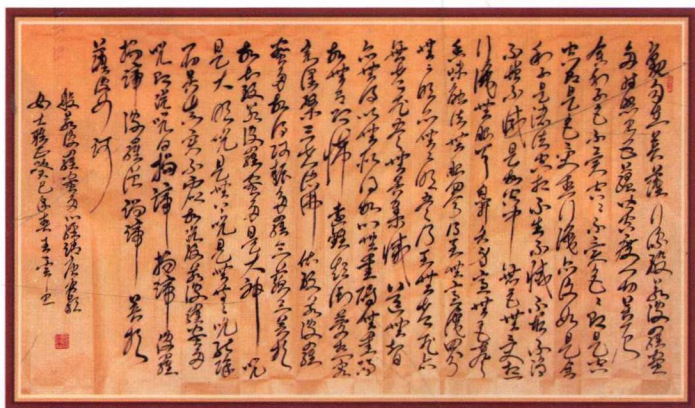 觀自在菩薩行深般若波羅蜜
多時照見五蘊皆空度一切苦厄
舍利子色不異空空不異色色即是空
空即是色受想行識亦復如是舍
利子是諸法空相不生不滅不垢不淨
不增不減是故空中無色無受想
行識無眼耳鼻舌身意無色聲
香味觸法無眼界乃至無意識界
無無明亦無無明盡乃至無老死亦
無老死盡無苦集滅道無智
亦無得以無所得故無罣礙無罣礙故
無有恐怖遠離顛倒夢想究
竟涅槃三世諸佛依般若波羅
蜜多故得阿耨多羅三藐三菩提
故知般若波羅蜜多是大神咒
是大明咒是無上咒是無等等咒能除
一切苦真實不虛故說般若波羅蜜多
咒即說咒曰揭諦揭諦波羅
揭諦波羅僧揭諦菩提
薩婆訶
般若波羅蜜多心經
女士雅正癸巳年春書